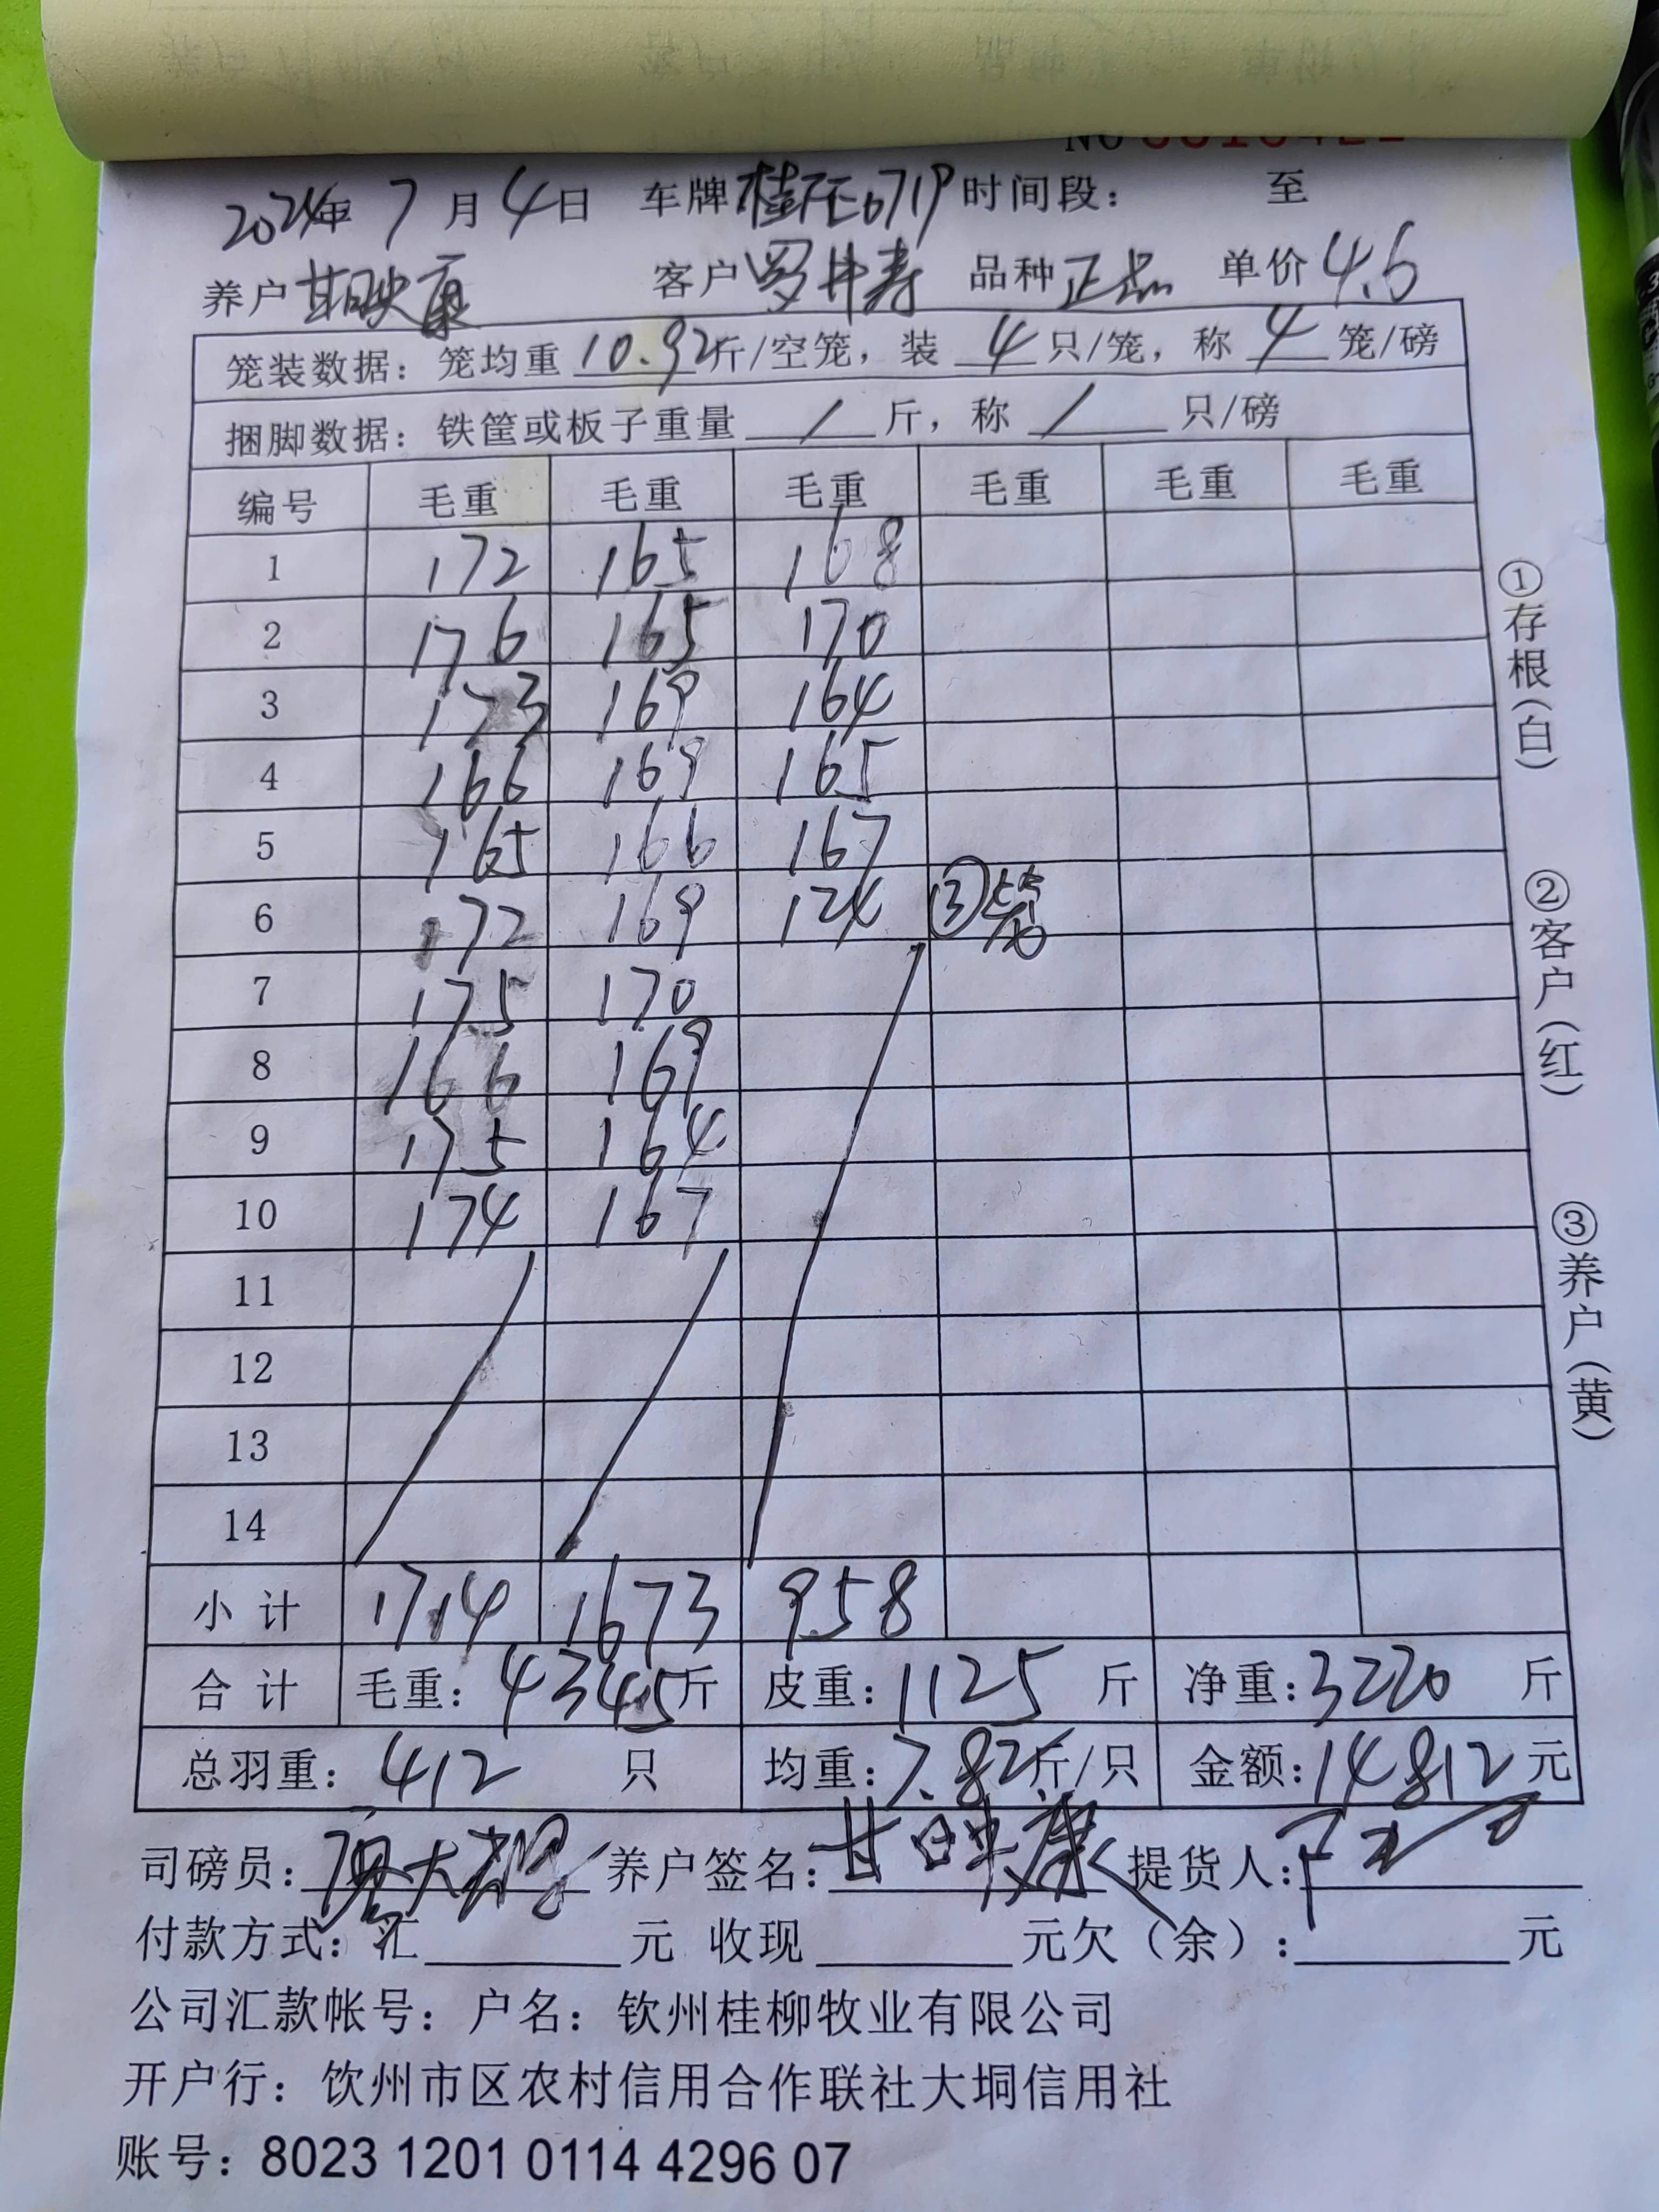 2024年 7 月 4 日 车牌 6719 时间段： 至
养户 甘映康 客户 罗井寿 品种 正品 单价 4.6
笼装数据：笼均重 10.92 斤/空笼，装 4 只/笼，称 4 笼/磅
捆脚数据：铁筐或板子重量 / 斤，称 / 只/磅
编号 毛重 毛重 毛重 毛重 毛重 毛重
1 172 165 168
2 176 165 170
3 173 169 164
4 166 169 165
5 165 166 167
6 172 169 124 ③笼
7 175 170
8 166 169
9 175 164
10 174 167
11
12
13
14
小计 1714 1673 958
合计 毛重：4345斤 皮重：1125 斤 净重：3220 斤
总羽重：412 只 均重：7.82斤/只 金额：14812元
司磅员： 养户签名：甘映康 提货人：
付款方式：汇 元 收现 元欠（余）： 元
公司汇款帐号：户名：钦州桂柳牧业有限公司
开户行：饮州市区农村信用合作联社大垌信用社
账号：8023 1201 0114 4296 07
①存根（白）
②客户（红）
③养户（黄）